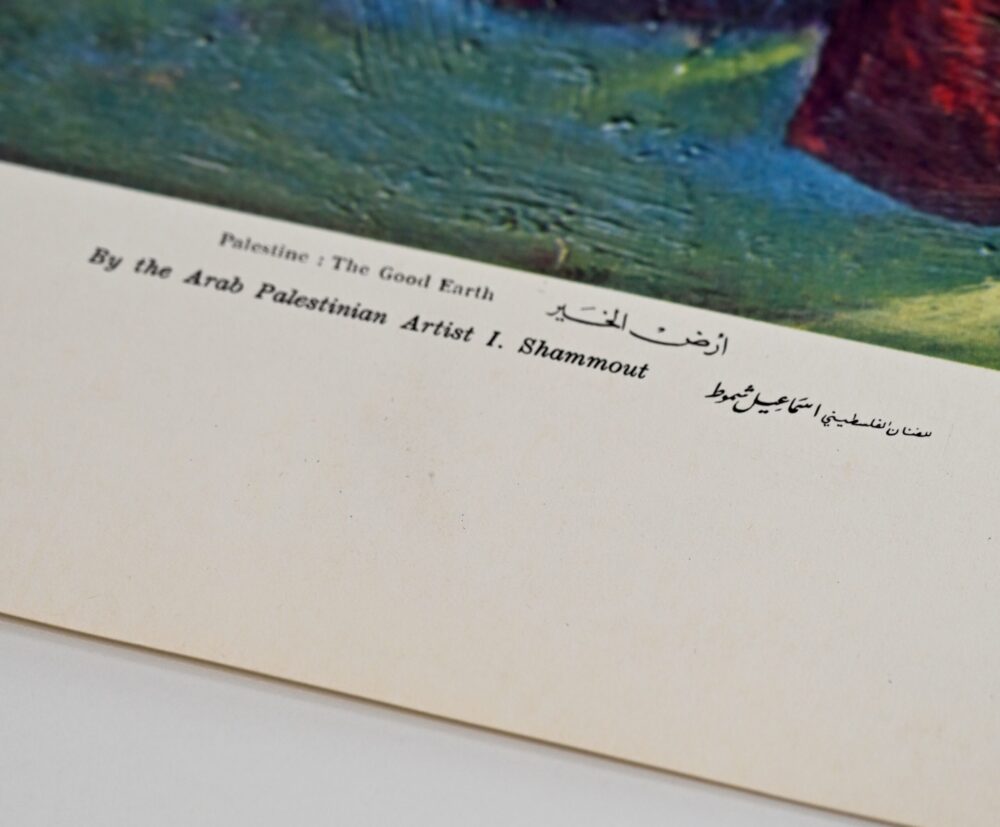 Palestine : The Good Earth
أرض الخير
By the Arab Palestinian Artist I. Shammout
للفنان الفلسطيني اسماعيل شموط